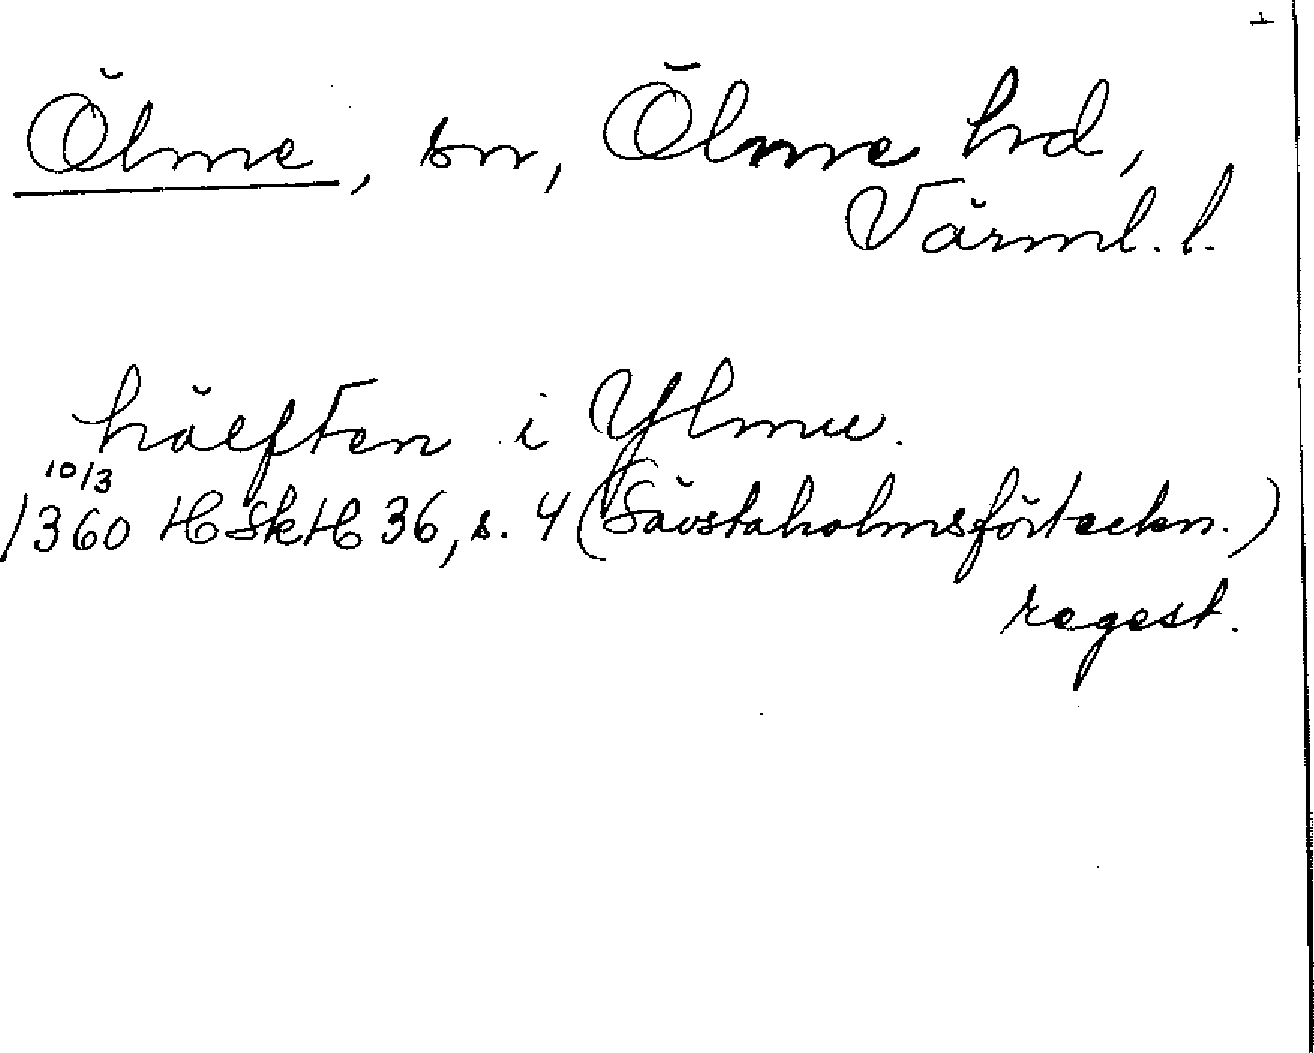 +
Ölme, sn, Ölme hd,
Värml. l.
hälften i Ylmu.
10/3
1360 HSkH 36, s. 4 (Sävstaholmsförteckn.)
regest.